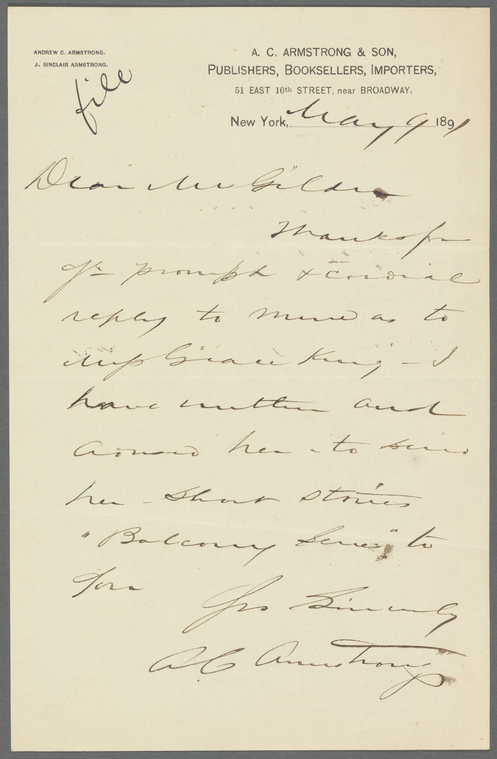 ANDREW C. ARMSTRONG.
J. SINCLAIR ARMSTRONG.
file
A. C. ARMSTRONG & SON,
PUBLISHERS, BOOKSELLERS, IMPORTERS,
51 EAST 10th STREET, near BROADWAY.
New York, May 9 1891
Dear Mr Gilder
Thanks for
yr prompt & cordial
reply to mine as to
Miss Grace King - I
have written and
advised her - to send
her - short stories
"Balcony Series" to
you
Yrs Sincerely
A C Armstrong